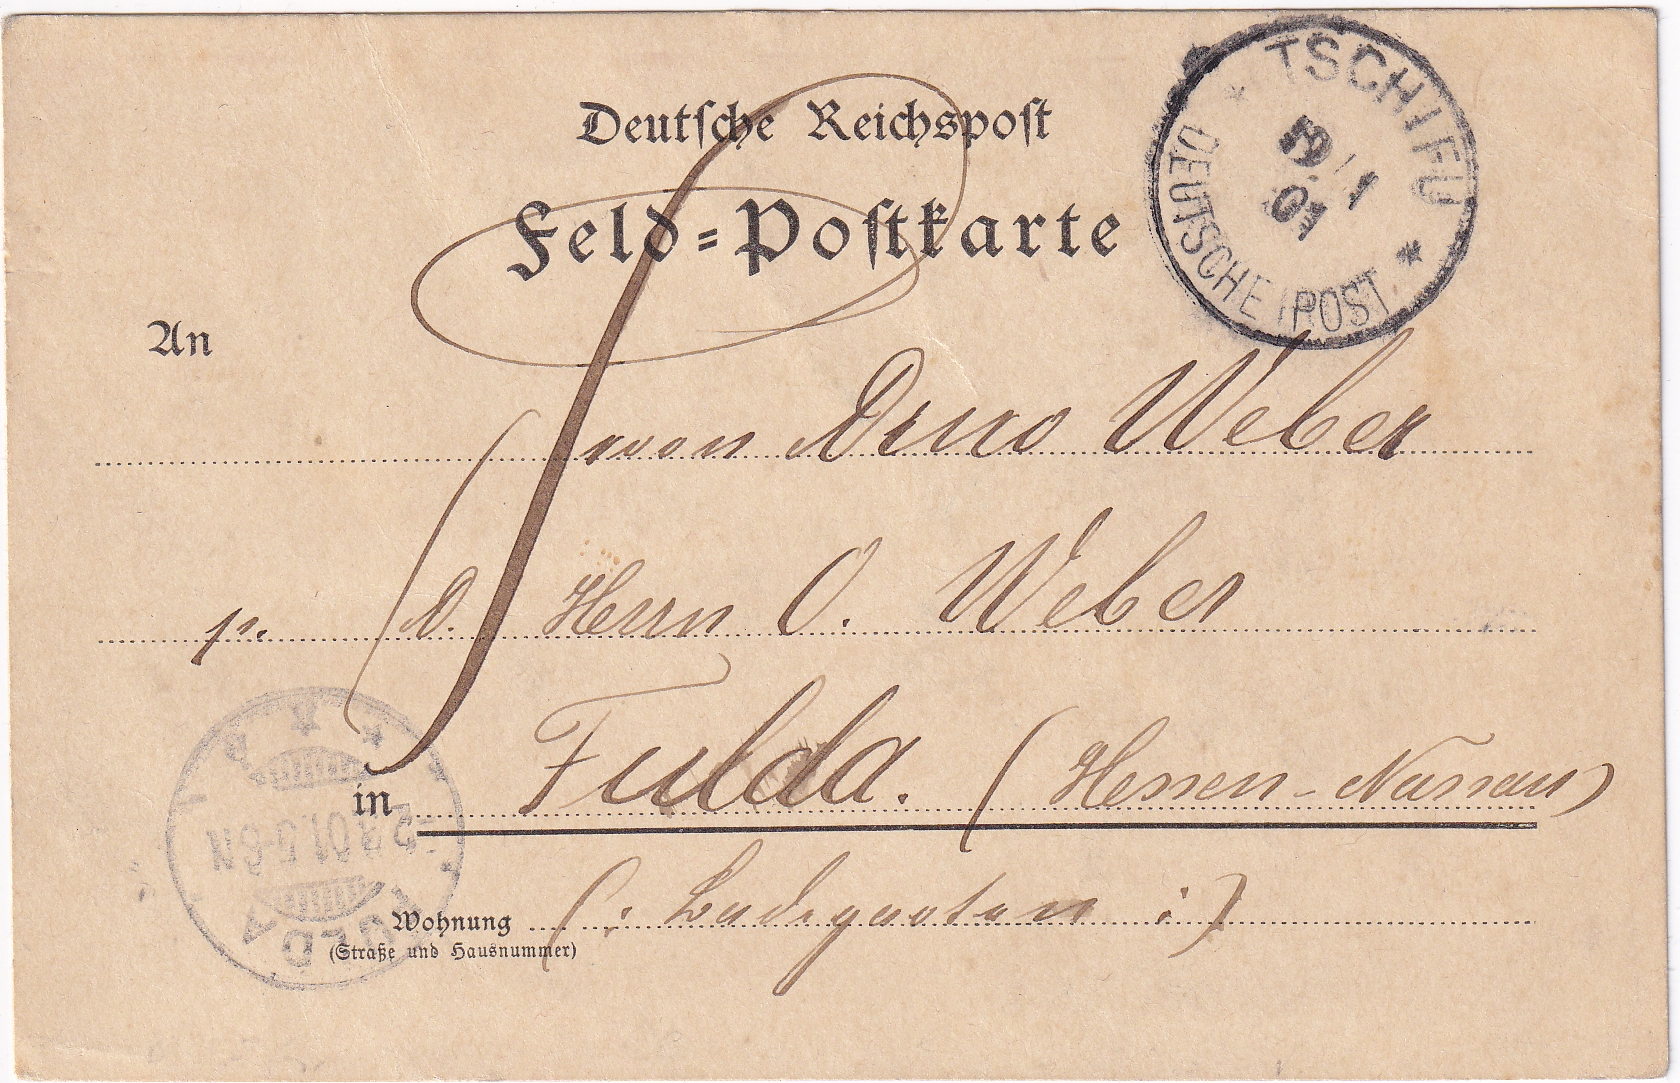 Deutsche Reichspost
Feld-Postkarte
TSCHIFU
19/1
01
DEUTSCHE POST
An
Arno Weber
p. A. Herrn O. Weber
in Fulda. (Hessen-Nassau)
Wohnung
(Straße und Hausnummer)
FULDA
2.3.01.5-6N